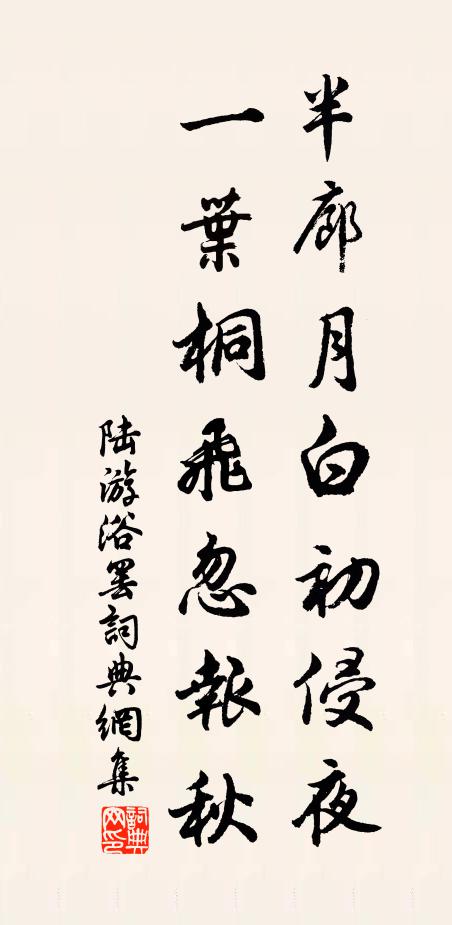 半廊月白初侵夜
一葉桐飛忽報秋
陆游浴罢詞典網集
詞典網印